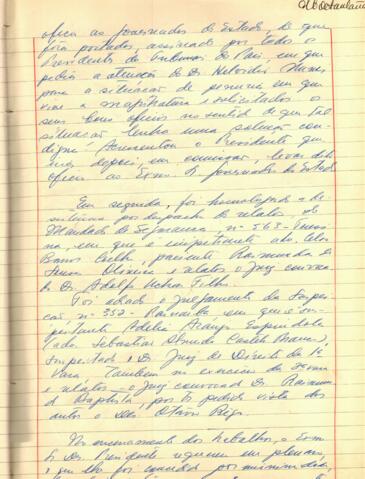 ofício ao Governador do Estado, de que
fora portador, assinado por todos os
Presidentes de Tribunais do País, em que
pedia a atenção de Dr. Nunes
para a situação de penúria em que
vive a magistratura e solicitados os
seus bons ofícios no sentido de que tal
situação tenha uma solução con-
digna. Acrescentou o Presidente que
dias depois, em, levou dito
ofício ao Exmo. Sr. Governador do Estado
Em seguida, foi homologada a de-
sistência por despacho do relator, do
Mandado de Segurança nº 563 - Teresi-
na, em que é impetrante adv. Celso
Barros Coelho, paciente Raimunda de
Sousa Oliveira e relator o Juiz convoca-
do Dr. Adolfo Uchôa Filho.
Foi adiado o julgamento da Suspei-
ção nº 352 - Parnaíba, em que é im-
petrante Adélia Araujo
(adv. Sebastião Almeida Castelo Branco),
impetrado o Dr. Juiz de Direito da 1ª
Vara também no exercício da
e relator o Juiz convocado Dr. Raimun-
do Baptista, por ter pedido vista dos
autos o Des. Otávio Rêgo.
No encerramento dos trabalhos, o Exmo.
Sr. Des. Presidente requereu em plenário,
e que lhe foi concedida por unanimidade,